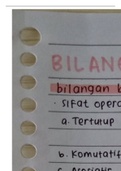 BILAN
bilangan b
· Sifat opera
a. Tertutup
b. Komutatif
c. Asosiatif